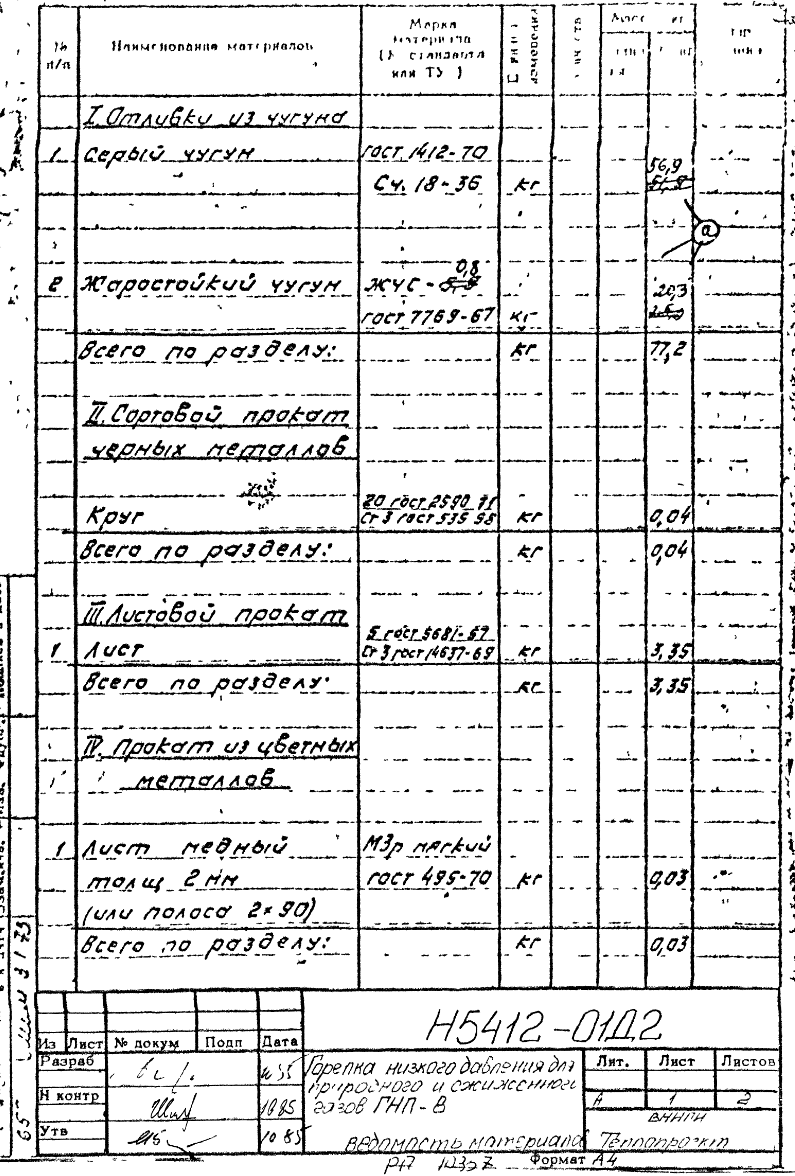 № п/п Наименования материалов Марка материала (№ стандарта или ТУ)
I. Отливки из чугуна
1 Серый чугун ГОСТ 1412-70
56,9
Сч. 18-36 кг
а
0,8
2 Жаростойкий чугун ЖЧС-5,5 20,3
ГОСТ 7769-67 кг
Всего по разделу: кг 77,2
II. Сортовой прокат
черных металлов
20 ГОСТ 2590-71
Круг Ст 3 ГОСТ 535-58 кг 0,04
Всего по разделу: кг 0,04
III. Листовой прокат
5 ГОСТ 5681-57
1 Лист Ст 3 ГОСТ 14637-69 кг 3,35
Всего по разделу: кг 3,35
IV. Прокат из цветных
металлов
1 Лист медный М3р мягкий
толщ 2 мм ГОСТ 495-70 кг 0,03
(или полоса 2×90)
Всего по разделу: кг 0,03
Н5412-01Д2
Из Лист № докум Подп Дата
Разраб
Н контр 10 85
Утв 10 85
Горелка низкого давления для
природного и сжиженного
газов ГНП-8
Лит. Лист Листов
А 1 2
Ведомость материалов
ВНИПИ
Теплопроект
Формат А4